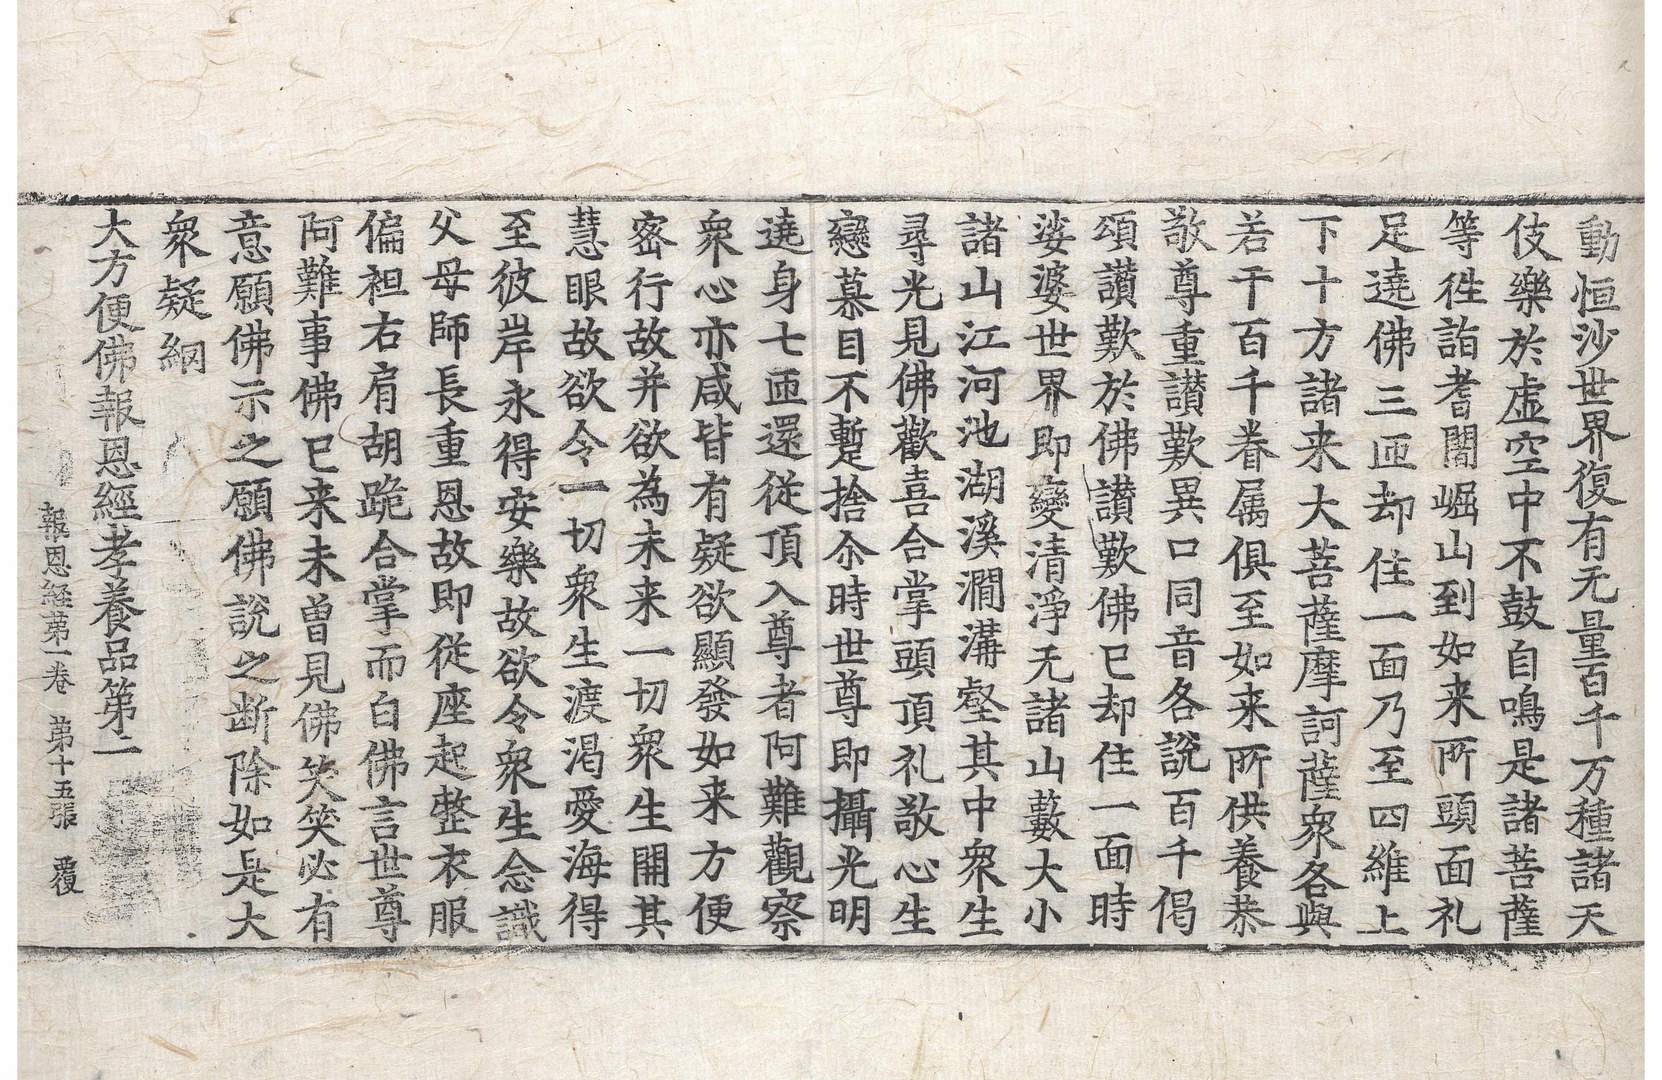 動恒沙世界復有无量百千万種諸天
伎樂於虛空中不鼓自鳴是諸菩薩
等徃詣耆闍崛山到如来所頭面礼
足遶佛三匝却住一面乃至四維上
下十方諸来大菩薩摩訶薩衆各與
若干百千眷属俱至如来所供養恭
敬尊重讃歎異口同音各說百千偈
頌讃歎於佛讃歎佛已却住一面時
娑婆世界即變清淨无諸山藪大小
諸山江河池湖溪澗溝壑其中衆生
尋光見佛歡喜合掌頭頂礼敬心生
戀慕目不暫捨尒時世尊即攝光明
遶身七匝還從頂入尊者阿難觀察
衆心亦咸皆有疑欲顯發如来方便
密行故并欲為未来一切衆生開其
慧眼故欲令一切衆生渡渴愛海得
至彼岸永得安樂故欲令衆生念識
父母師長重恩故即從座起整衣服
偏袒右肩胡跪合掌而白佛言世尊
阿難事佛已来未曽見佛笑笑必有
意願佛示之願佛說之断除如是大
衆疑網
大方便佛報恩經孝養品第二
報恩経第一卷 第十五張 覆